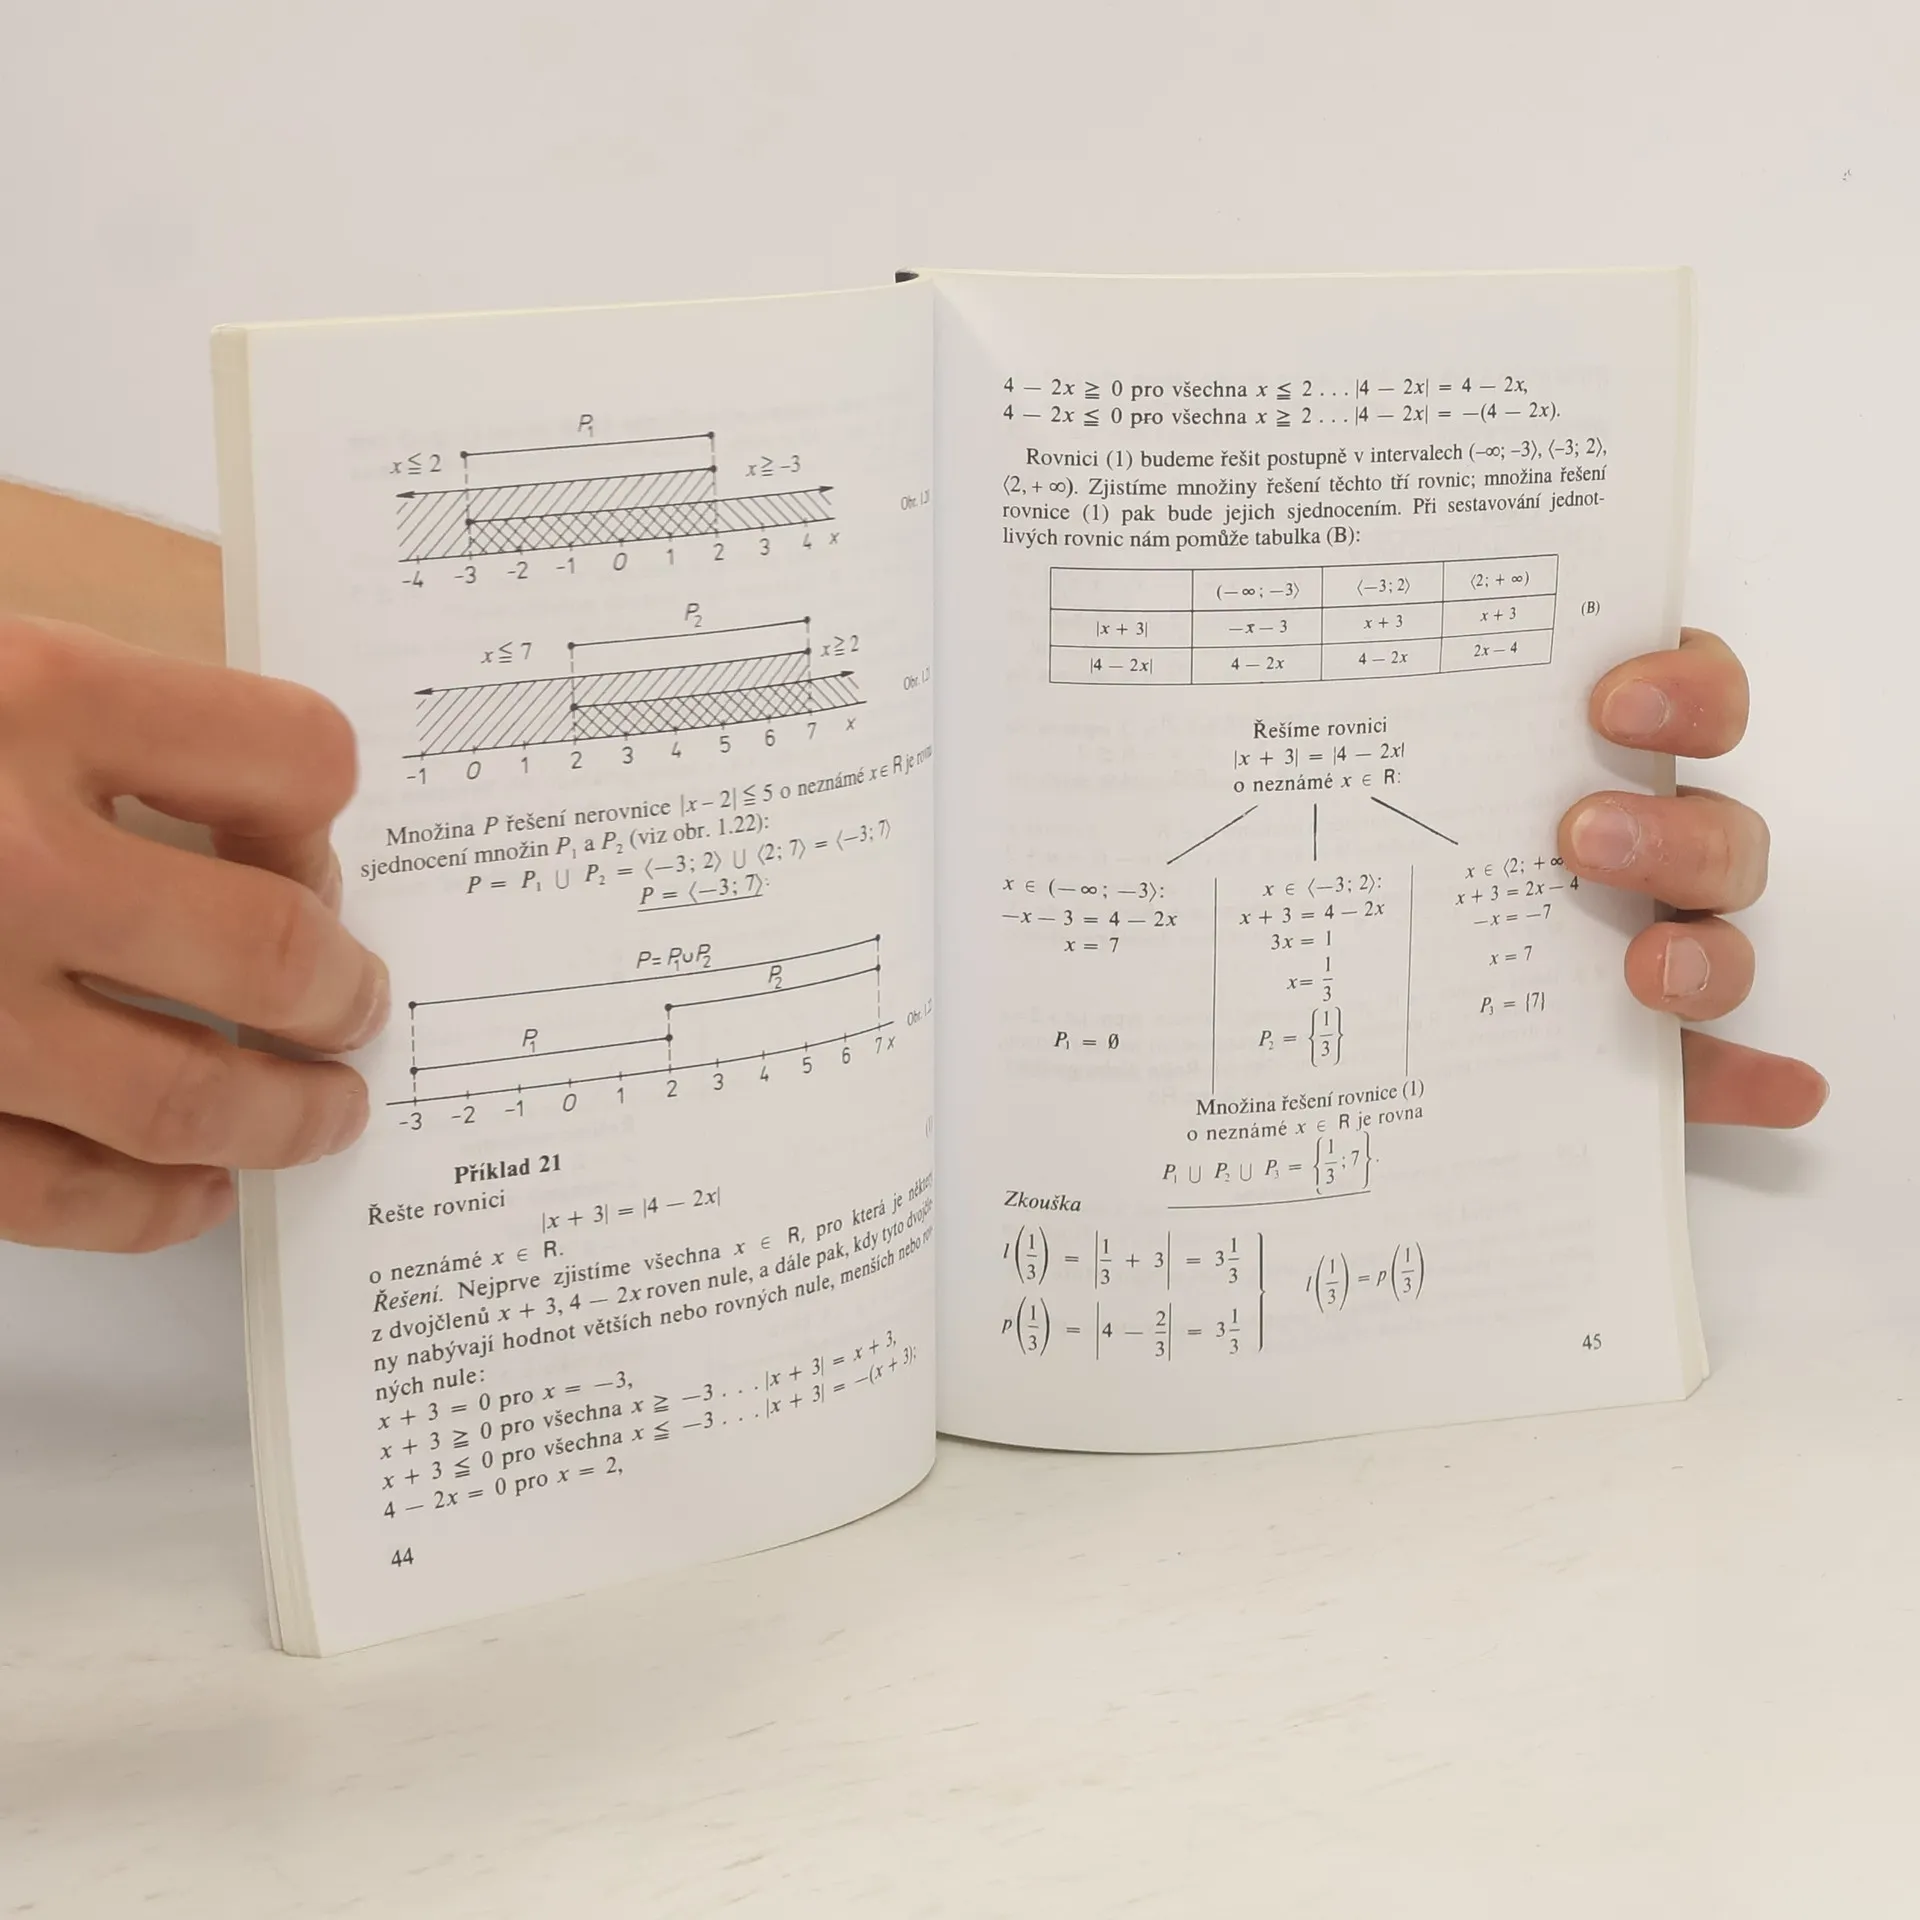 P₁
x ≦ 2
x ≧ -3
Obr. 1.20
-4 -3 -2 -1 0 1 2 3 4 x
P₂
x ≦ 7
x ≧ 2
-1 0 1 2 3 4 5 6 7 x
Množina P řešení nerovnice |x - 2| ≦ 5 o neznámé x ∈ R je
sjednocení množin P₁ a P₂ (viz obr. 1.22):
P = P₁ ∪ P₂ = ⟨-3; 2⟩ ∪ ⟨2; 7⟩ = ⟨-3; 7⟩
P = ⟨-3; 7⟩:
P = P₁∪P₂
P₂
P₁
-3 -2 -1 0 1 2 3 4 5 6 7 x
Příklad 21
Řešte rovnici
|x + 3| = |4 — 2x|
o neznámé x ∈ R.
Řešení. Nejprve zjistíme všechna x ∈ R, pro která je
z dvojčlenů x + 3, 4 — 2x roven nule, a dále pak, kdy tyto
ny nabývají hodnot větších nebo rovných nule, menších nebo
ných nule:
x + 3 = 0 pro x = —3,
x + 3 ≧ 0 pro všechna x ≧ —3 . . . |x + 3| = x + 3,
x + 3 ≦ 0 pro všechna x ≦ —3 . . . |x + 3| = —(x + 3);
4 — 2x = 0 pro x = 2,
44
4 — 2x ≧ 0 pro všechna x ≦ 2 . . . |4 — 2x| = 4 — 2x,
4 — 2x ≦ 0 pro všechna x ≧ 2 . . . |4 — 2x| = —(4 — 2x).
Rovnici (1) budeme řešit postupně v intervalech (-∞; -3⟩, ⟨-3; 2⟩,
⟨2, + ∞). Zjistíme množiny řešení těchto tří rovnic; množina řešení
rovnice (1) pak bude jejich sjednocením. Při sestavování jednot-
livých rovnic nám pomůže tabulka (B):
(—∞; —3⟩ ⟨—3; 2⟩ ⟨2; + ∞)
|x + 3| —x — 3 x + 3 x + 3 (B)
|4 — 2x| 4 — 2x 4 — 2x 2x — 4
Řešíme rovnici
|x + 3| = |4 — 2x|
o neznámé x ∈ R:
x ∈ (—∞; —3⟩:
—x — 3 = 4 — 2x
x = 7
P₁ = Ø
x ∈ ⟨—3; 2⟩:
x + 3 = 4 — 2x
3x = 1
x = 1/3
P₂ = {1/3}
x ∈ ⟨2; +∞
x + 3 = 2x — 4
—x = —7
x = 7
P₃ = {7}
Množina řešení rovnice (1)
o neznámé x ∈ R je rovna
P₁ ∪ P₂ ∪ P₃ = {1/3; 7}.
Zkouška
l(1/3) = |1/3 + 3| = 3 1/3
p(1/3) = |4 — 2/3| = 3 1/3
l(1/3) = p(1/3)
45